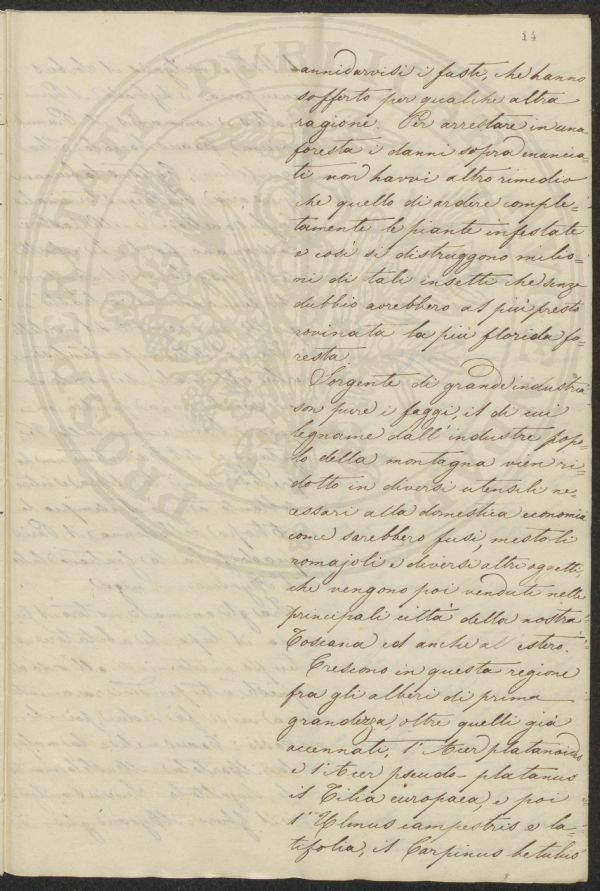 14
annidarvisi i fusti, che hanno
sofferto per qualche altra
ragione. Per arrestare in una
foresta i danni sopra enuncia-
ti non havvi altro rimedio
che quello di ardere comple-
tamente le piante infestate
e così si distruggono milio-
ni di tali insetti che senza
dubbio avrebbero al più presto
rovinata la più florida fo-
resta.
Sorgente di grande industria
son pure i faggi, il di cui
legname dall'industre popo-
lo della montagna vien ri-
dotto in diversi utensili ne-
cessari alla domestica economia
come sarebbero fusi, mestoli
romajoli e diversi altri oggetti,
che vengono poi venduti nelle
principali città della nostra
Toscana ed anche all'estero.
Crescono in questa regione
fra gli alberi di prima
grandezza oltre quelli già
accennati, l'Acer platanoides
e l'Acer pseudo-platanus
il Tilia europaea, e poi
l'Ulmus campestris e la-
tifolia, il Carpinus betulus